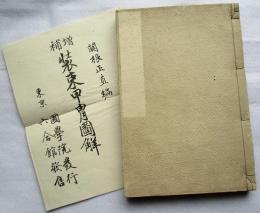 關根正直編
增補
裝束甲冑圖解
東京
國學院發行
六合館發售